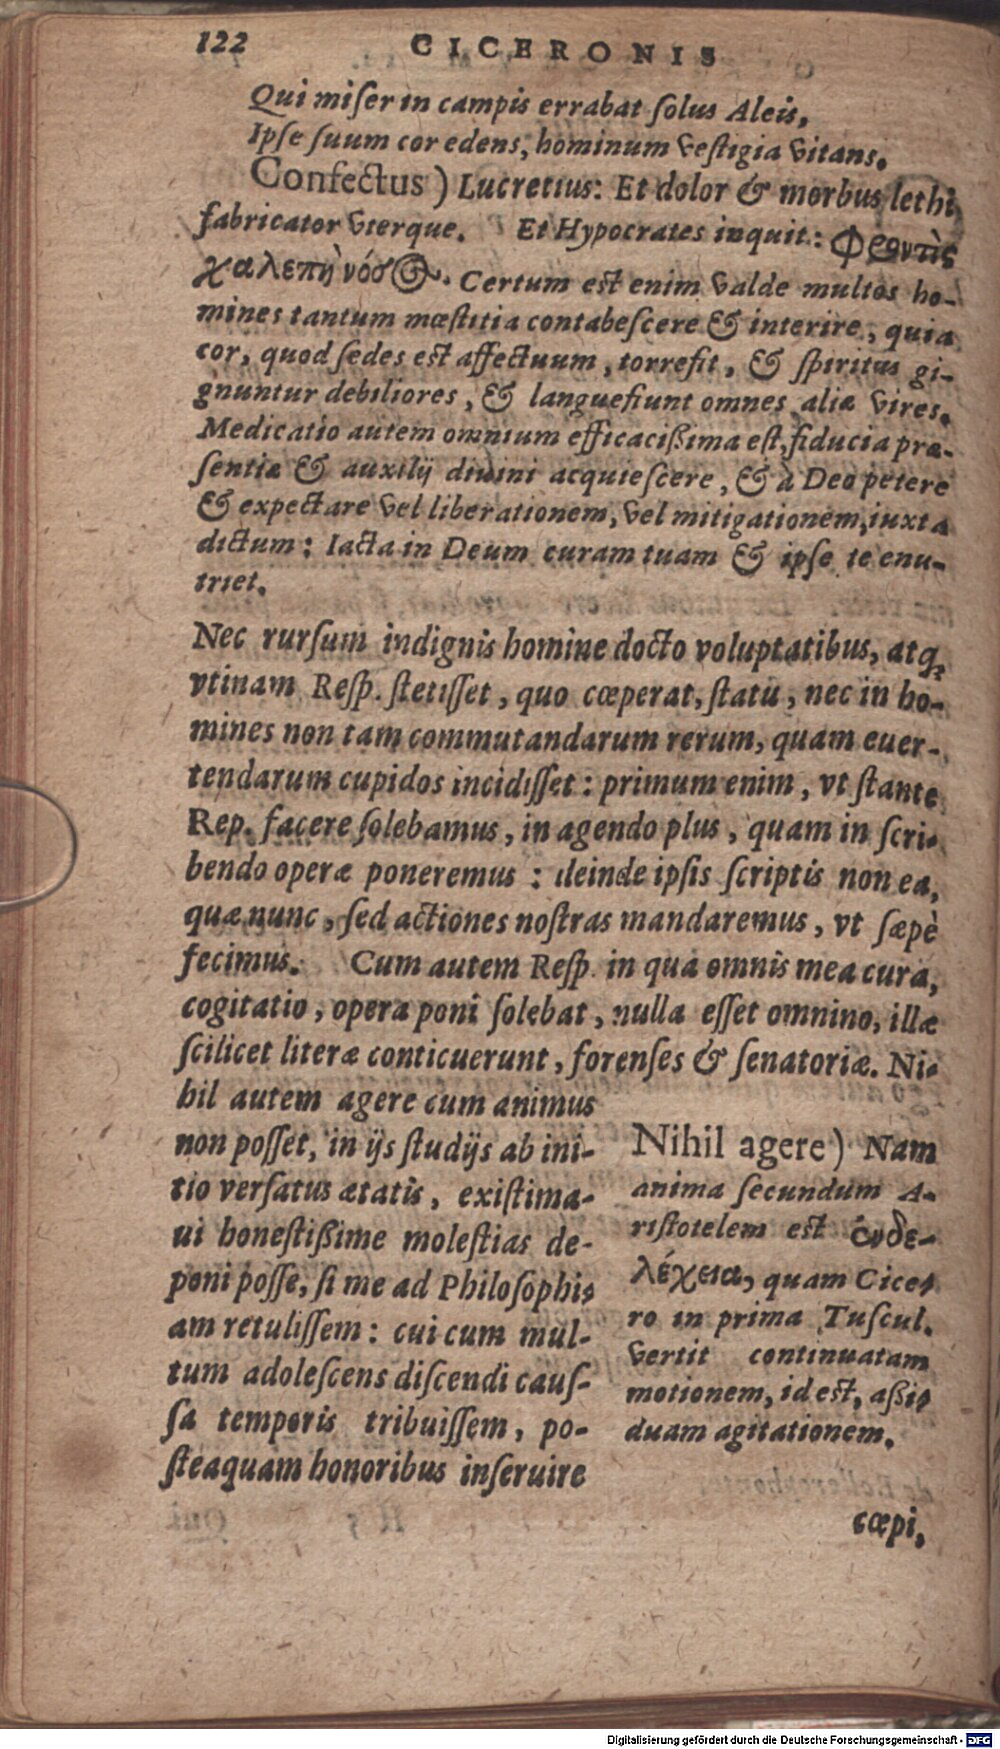 122 CICERONIS
Qui miser in campis errabat solus Aleis,
Ipse suum cor edens, hominum vestigia vitans.
Confectus) Lucretius: Et dolor & morbus lethi
fabricator vterque. Et Hypocrates inquit: Φροντὶς
χαλεπὴ νόσος. Certum est enim valde multos ho-
mines tantum mœstitia contabescere & interire, quia
cor, quod sedes est affectuum, torrefit, & spiritus gi-
gnuntur debiliores, & languefiunt omnes aliæ vires.
Medicatio autem omnium efficacißima est, fiducia præ-
sentiæ & auxilij diuini acquiescere, & à Deo petere
& expectare vel liberationem, vel mitigationem, iuxta
dictum: Iacta in Deum curam tuam & ipse te enu-
triet.
Nec rursum indignis homine docto voluptatibus, atq;
vtinam Resp. stetisset, quo cœperat, statu, nec in ho-
mines non tam commutandarum rerum, quam euer-
tendarum cupidos incidisset: primum enim, vt stante
Rep. facere solebamus, in agendo plus, quam in scri-
bendo operæ poneremus: deinde ipsis scriptis non ea,
quæ nunc, sed actiones nostras mandaremus, vt sæpè
fecimus. Cum autem Resp. in qua omnis mea cura,
cogitatio, opera poni solebat, nulla esset omnino, illæ
scilicet literæ conticuerunt, forenses & senatoriæ. Ni-
hil autem agere cum animus
non posset, in ijs studijs ab ini-
tio versatus ætatis, existima-
ui honestißime molestias de-
poni posse, si me ad Philosophi-
am retulissem: cui cum mul-
tum adolescens discendi caus-
sa temporis tribuissem, po-
steaquam honoribus inseruire
Nihil agere) Nam
anima secundum A-
ristotelem est ἐνδε-
λέχεια, quam Cice-
ro in prima Tuscul.
vertit continuatam
motionem, id est, aßi-
duam agitationem.
cœpi,
Digitalisierung gefördert durch die Deutsche Forschungsgemeinschaft - DFG